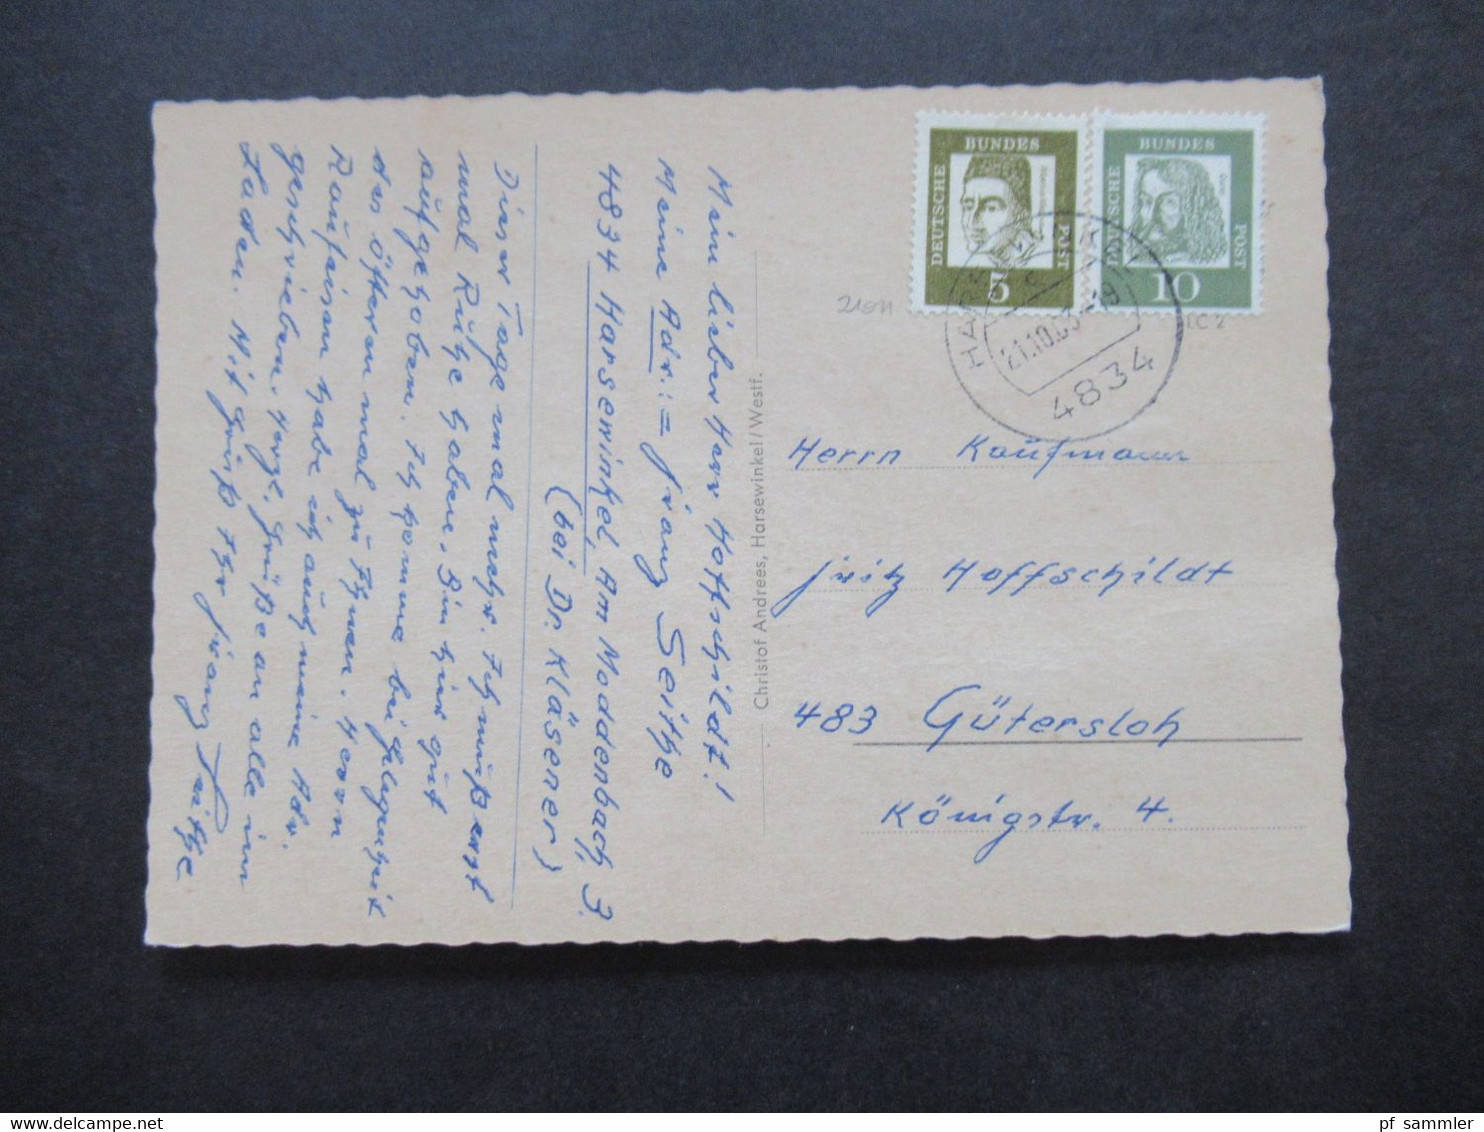 Mein lieber Herr Hoffschildt!
Meine Adr.:= Franz Seithe
4834 Harsewinkel, Am Moddenbach, 3.
(bei Dr. Kläsener)
Dieser Tage mal mehr. Ich muß erst
mal Ruhe haben. Bin hier gut
aufgehoben. Ich komme bei Gelegenheit
des öfteren mal zu Ihnen. Herrn
Kaufmann habe ich auch meine Adr.
geschrieben. Herzl. Grüße an alle im
Laden. Mit Gruß Ihr Franz Seithe
Christof Andrees, Harsewinkel/Westf.
DEUTSCHE BUNDES POST
5
DEUTSCHE BUNDES POST
Dürer
10
HARSEWINKEL
21.10.63
4834
Herrn Kaufmann
Fritz Hoffschildt
483 Gütersloh
Königstr. 4.
pf_sammler